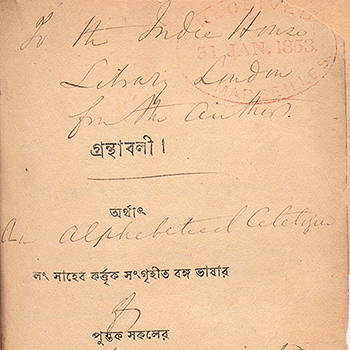 To the India House
RECEIVED
31 JAN. 1853.
Library London
from the Author.
গ্রন্থাবলী।
অর্থাৎ
An Alphabetical Catalogue
লং সাহেব কর্ত্তৃক সংগৃহীত বঙ্গ ভাষার
of
পুস্তক সকলের